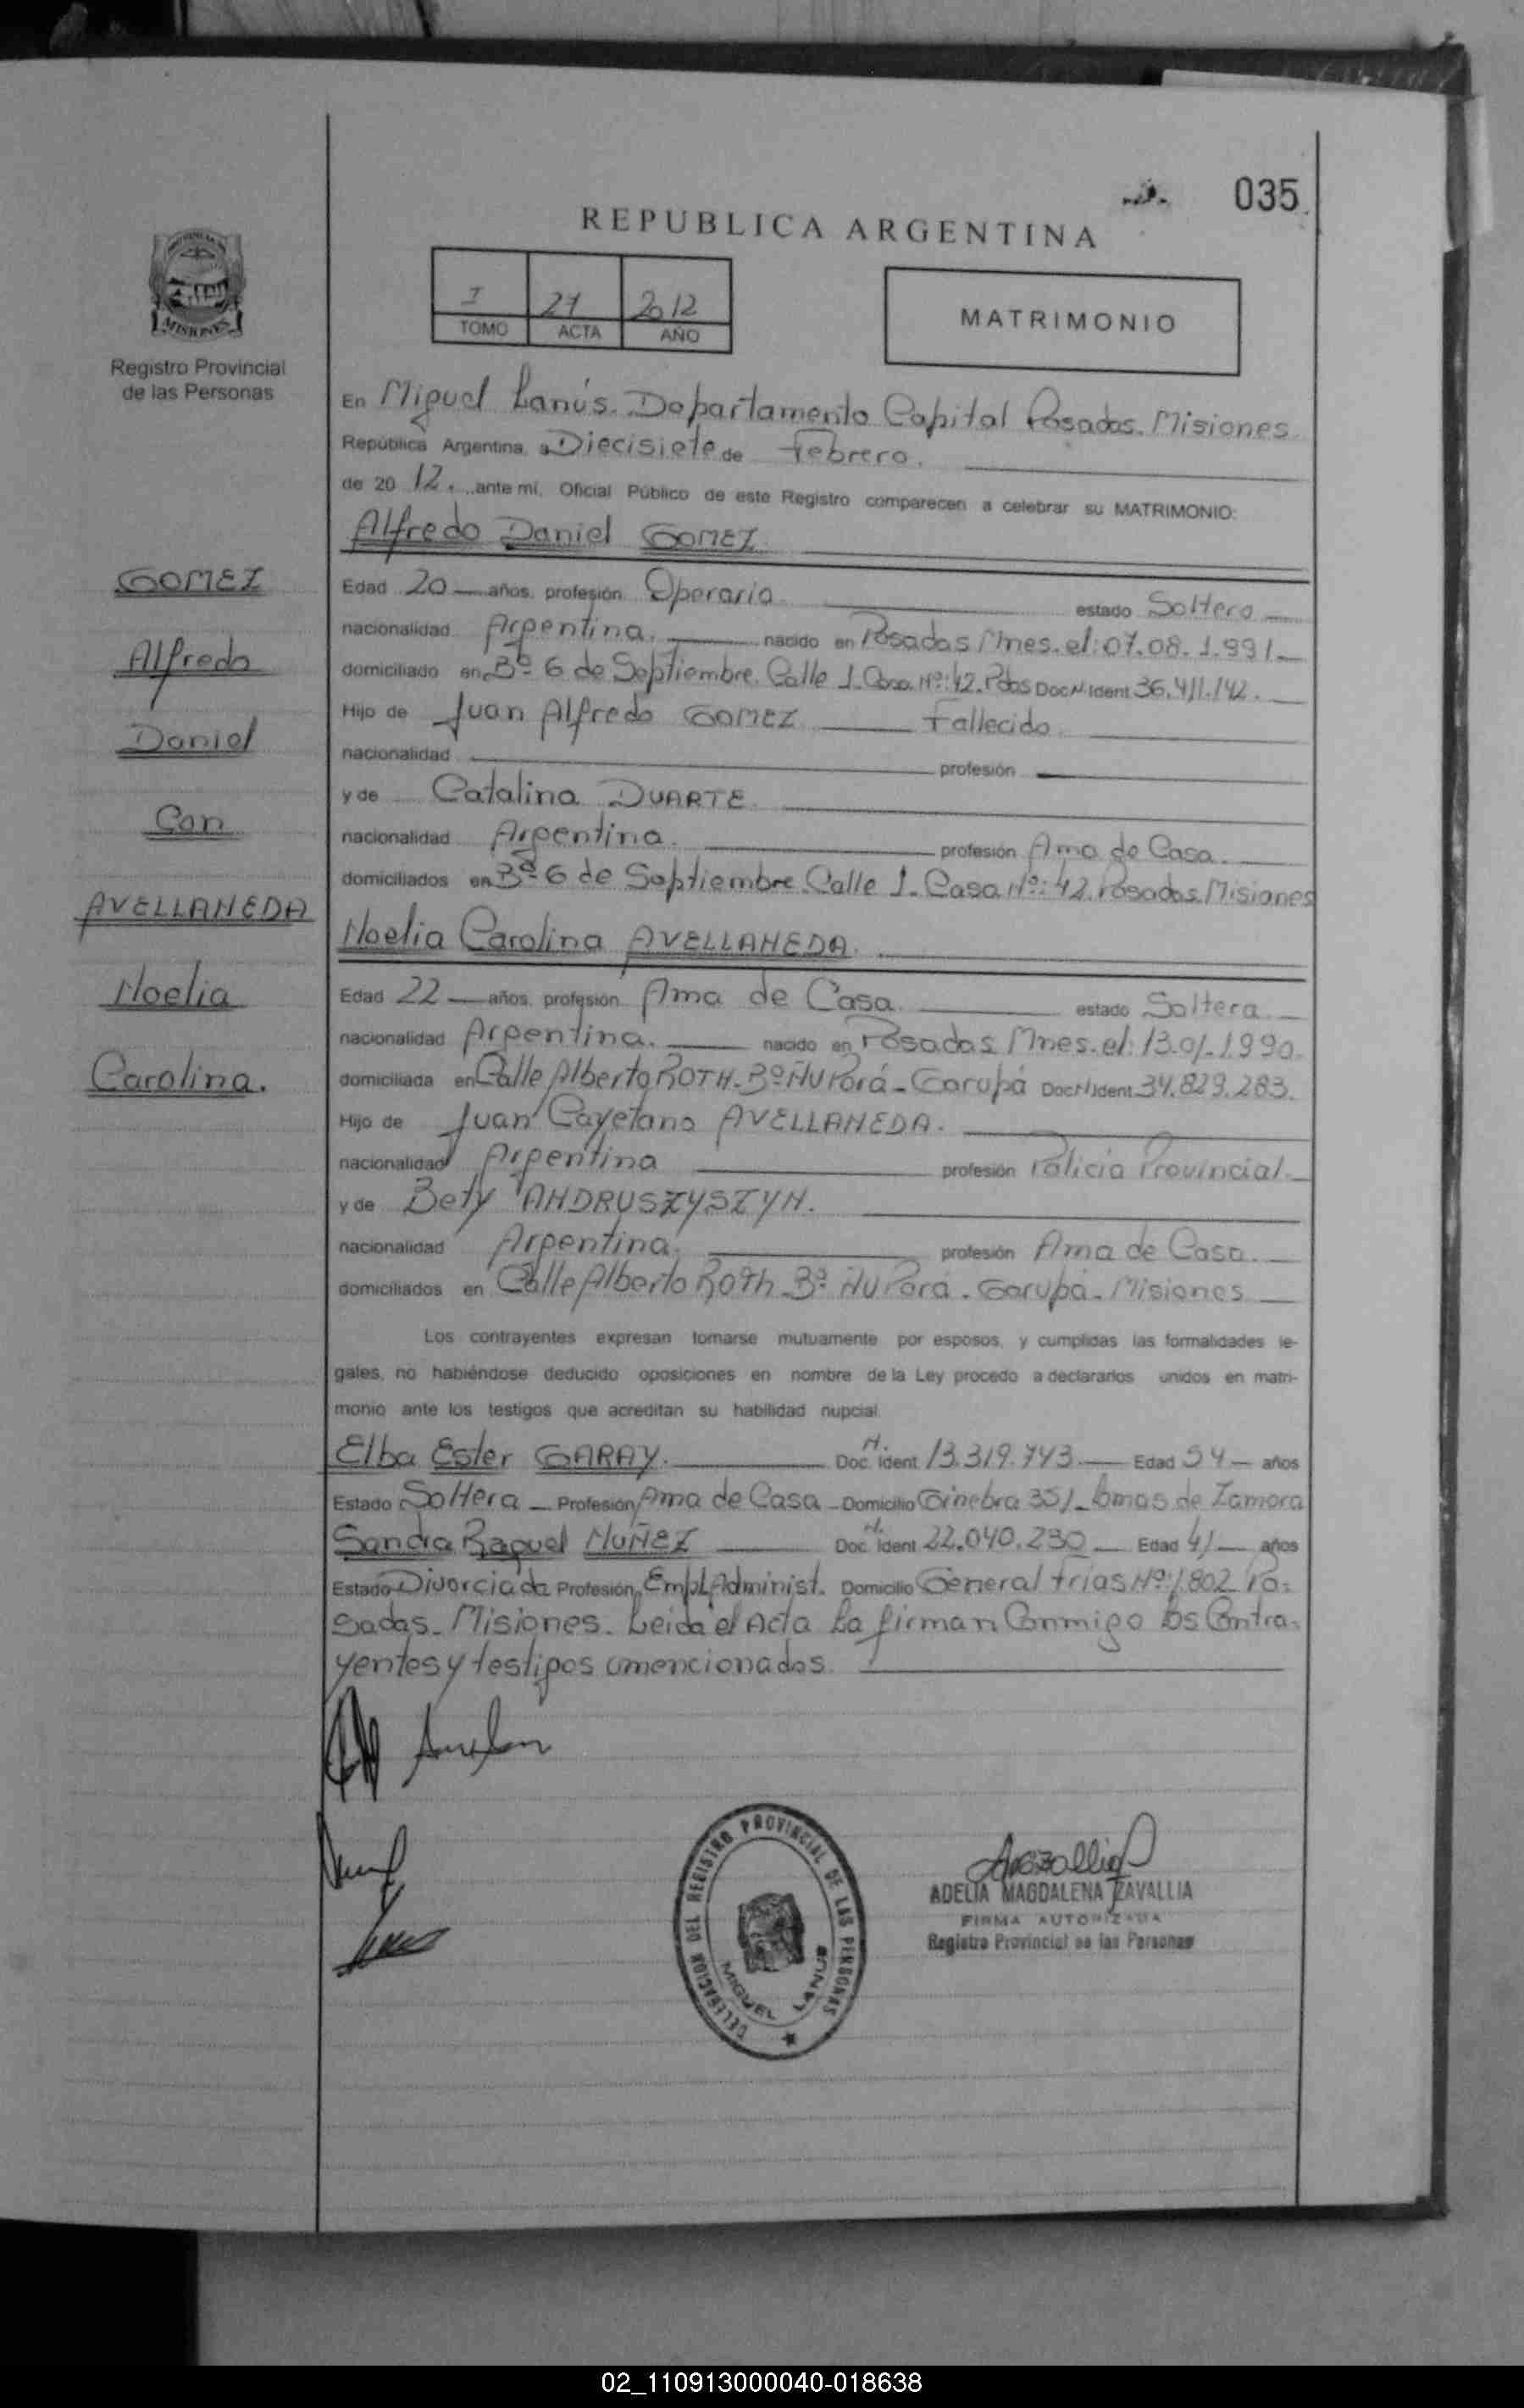 035
REPUBLICA ARGENTINA
I 21 2012
TOMO ACTA AÑO
MATRIMONIO
MISIONES
Registro Provincial
de las Personas
En Miguel Lanús. Departamento Capital Posadas. Misiones.
República Argentina, a Diecisiete de Febrero.
de 20 12. ante mí, Oficial Público de este Registro comparecen a celebrar su MATRIMONIO:
Alfredo Daniel GOMEZ
Edad 20 años, profesión Operario estado Soltero
nacionalidad Argentina. nacido en Posadas Mnes. el: 07.08.1.991
domiciliado en Bº 6 de Septiembre. Calle 1. Casa. Nº: 42. Pdas Doc N. Ident 36.411.142.
Hijo de Juan Alfredo GOMEZ Fallecido.
nacionalidad profesión
y de Catalina DUARTE.
nacionalidad Argentina. profesión Ama de Casa.
domiciliados en Bº 6 de Septiembre. Calle 1. Casa Nº: 42. Posadas. Misiones
Noelia Carolina AVELLANEDA.
Edad 22 años, profesión Ama de Casa. estado Soltera.
nacionalidad Argentina. nacido en Posadas Mnes. el: 13.01.1990.
domiciliada en Calle Alberto ROTH. Bº Ñu Porá - Garupá Doc N Ident 34.829.283.
Hijo de Juan Cayetano AVELLANEDA.
nacionalidad Argentina profesión Policia Provincial.
y de Bety ANDRUSZYSZYN.
nacionalidad Argentina. profesión Ama de Casa.
domiciliados en Calle Alberto Roth. Bº Ñu Porá. Garupá. Misiones
Los contrayentes expresan tomarse mutuamente por esposos, y cumplidas las formalidades le-
gales, no habiéndose deducido oposiciones en nombre de la Ley procedo a declararlos unidos en matri-
monio ante los testigos que acreditan su habilidad nupcial.
Elba Ester GARAY. Doc. N. Ident 13.319.743. Edad 54 años
Estado Soltera Profesión Ama de Casa Domicilio Ginebra 351 Lomas de Zamora
Sandra Raquel NUÑEZ Doc. N. Ident 22.040.230 Edad 41 años
Estado Divorciada Profesión Empl. Administ. Domicilio General Frías Nº: 1.802 Po-
sadas. Misiones. Leida el Acta La firman Conmigo los Contra-
yentes y testigos mencionados.
GOMEZ
Alfredo
Daniel
Con
AVELLANEDA
Noelia
Carolina.
DELEGACION DEL REGISTRO PROVINCIAL DE LAS PERSONAS
MIGUEL LANUS
ADELIA MAGDALENA ZAVALLIA
FIRMA AUTORIZADA
Registro Provincial de las Personas
02_110913000040-018638